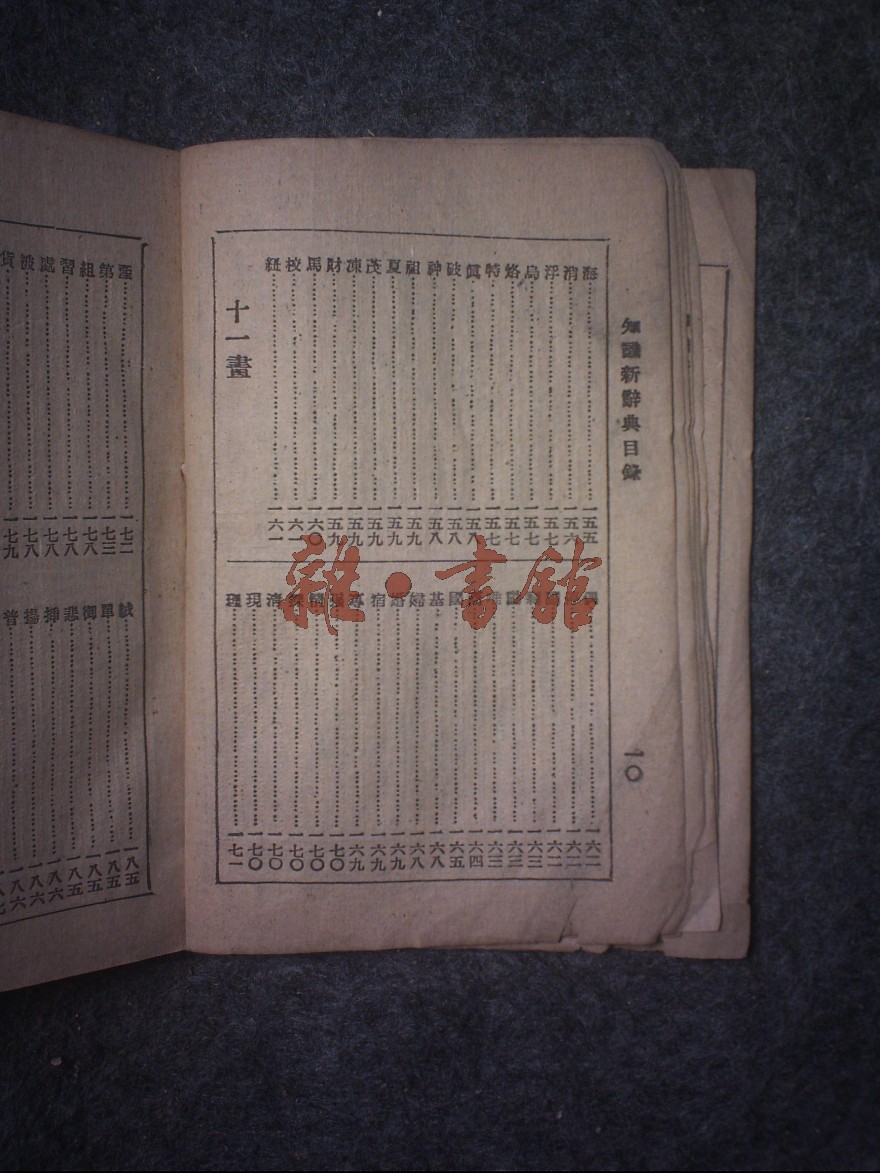 知識新辭典目錄
一〇
海……一五五
消……一五六
浮……一五七
烏……一五七
烙……一五七
特……一五七
眞……一五八
破……一五八
神……一五八
祖……一五九
夏……一五九
茂……一五九
凍……一五九
財……一五九
馬……一六〇
校……一六一
紐……一六一
十一畫
一六二
一六二
一六二
一六三
一六三
一六三
一六四
國……一六五
基……一六八
婦……一六八
婚……一六九
宿……一六九
專……一六九
一七〇
一七〇
探……一七〇
清……一七〇
現……一七〇
理……一七一
一七二
第……一七三
組……一七八
習……一七八
處……一七八
被……一七八
貨……一七九
誠……一八五
單……一八五
御……一八五
悲……一八五
押……一八六
揚……一八六
普
雜·書館